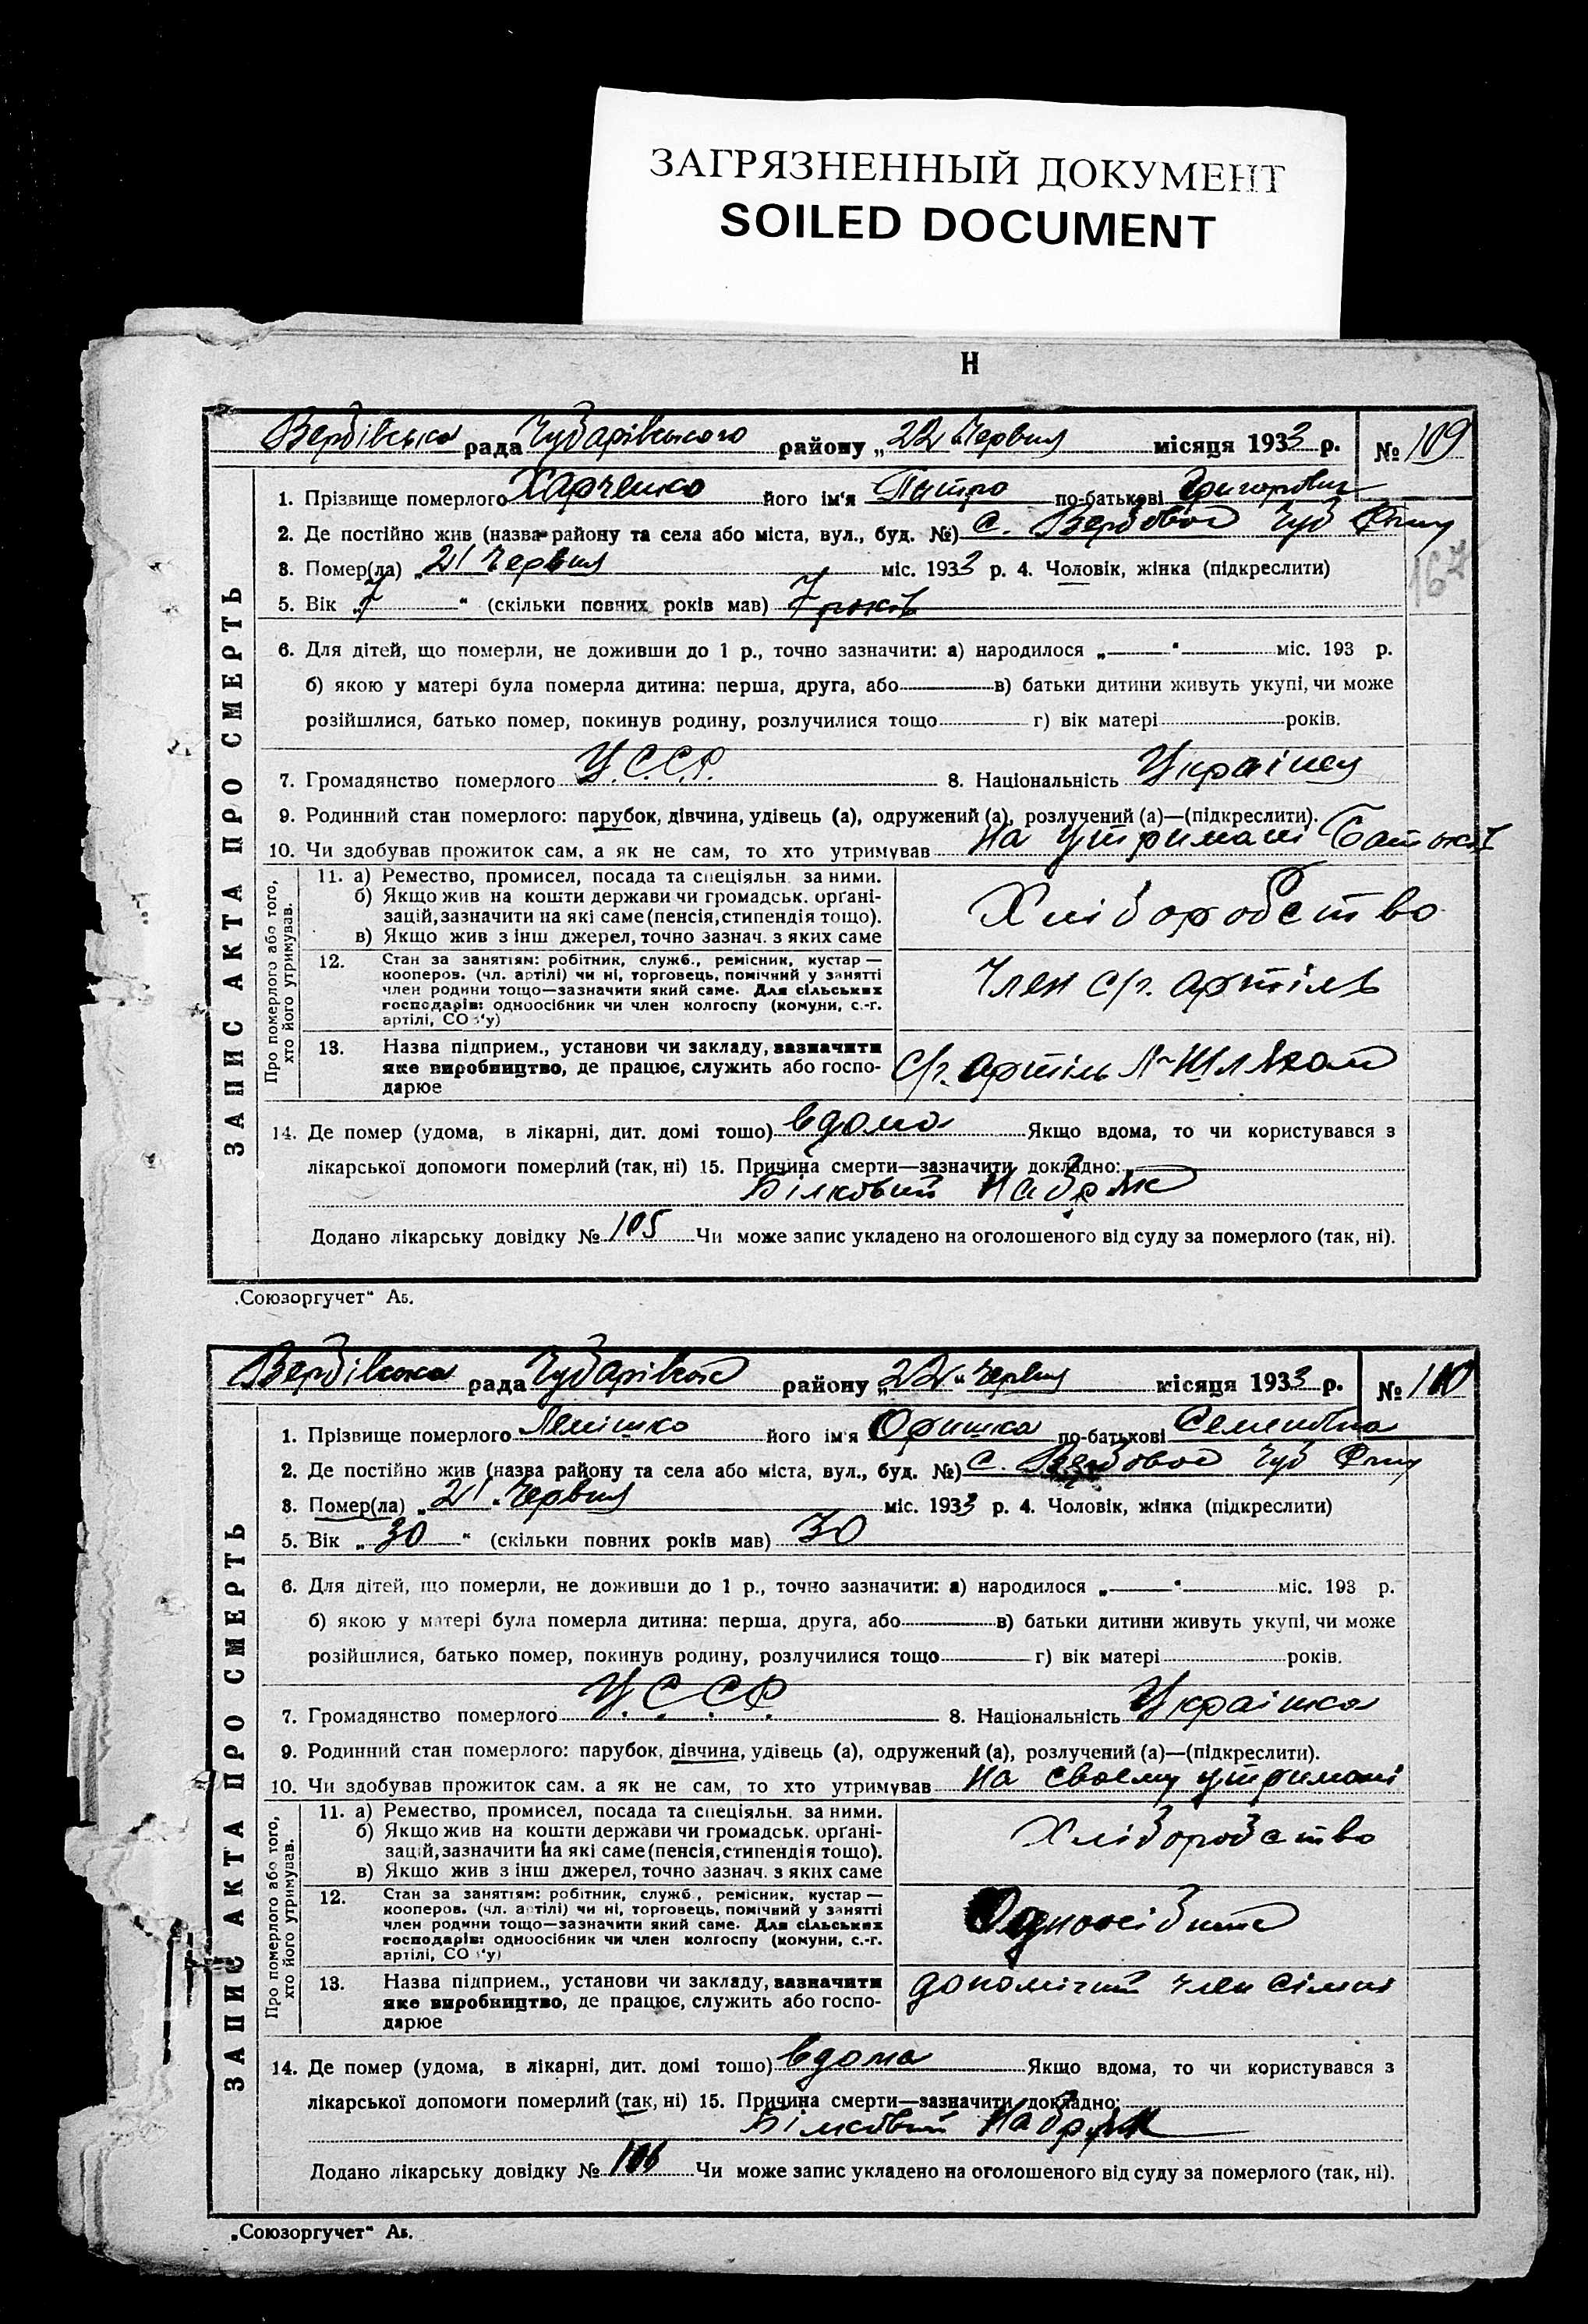 ЗАГРЯЗНЕННЫЙ ДОКУМЕНТ
SOILED DOCUMENT
Н
Вербівська рада Чубарівського району „22 Червня місяця 1933 р. № 109
167
ЗАПИС АКТА ПРО СМЕРТЬ
1. Прізвище померлого Харченко його ім'я Пытро по-батькові Григорович
2. Де постійно жив (назва району та села або міста, вул., буд. №) с. Вербовое Чуб
3. Помер(ла) „21 Червня міс. 1933 р. 4. Чоловік, жінка (підкреслити)
5. Вік „7 “ (скільки повних років мав) 7 років
6. Для дітей, що померли, не доживши до 1 р., точно зазначити: а) народилося „ “ міс. 193 р.
б) якою у матері була померла дитина: перша, друга, або в) батьки дитини живуть укупі, чи може
розійшлися, батько помер, покинув родину, розлучилися тощо г) вік матері років.
7. Громадянство померлого У.С.С.Р. 8. Національність Українец
9. Родинний стан померлого: парубок, дівчина, удівець (а), одружений (а), розлучений (а)—(підкреслити).
10. Чи здобував прожиток сам, а як не сам, то хто утримував На утримані Батьків
Про померлого або того, хто його утримував.
11. а) Ремество, промисел, посада та спеціяльн. за ними.
б) Якщо жив на кошти держави чи громадськ. орґані-
зацій, зазначити на які саме (пенсія, стипендія тощо).
в) Якщо жив з інш джерел, точно зазнач. з яких саме
Хліборобство
12. Стан за занятям: робітник, служб., ремісник, кустар —
кооперов. (чл. артілі) чи ні, торговець, помічний у занятті
член родини тощо—зазначити який саме. Для сільських
господарів: одноосібник чи член колгоспу (комуни, с.-г.
артілі, СО у)
Член с/г. артіль
13. Назва підприєм., установи чи закладу, зазначити
яке виробництво, де працює, служить або госпо-
дарює
С/г. артіль
14. Де помер (удома, в лікарні, дит. домі тощо) вдома Якщо вдома, то чи користувався з
лікарської допомоги померлий (так, ні) 15. Причина смерти—зазначити докладно:
Білковий Набряк
Додано лікарську довідку № 105 Чи може запис укладено на оголошеного від суду за померлого (так, ні).
„Союзоргучет“ Аб.
Вербівська рада Чубарівськ району „22“ червня місяця 1933 р. № 110
ЗАПИС АКТА ПРО СМЕРТЬ
1. Прізвище померлого Лемішко його ім'я Оришка по-батькові Семеновна
2. Де постійно жив (назва району та села або міста, вул., буд. №) с. Вербовое Чуб
3. Помер(ла) „21 Червня міс. 1933 р. 4. Чоловік, жінка (підкреслити)
5. Вік „30 “ (скільки повних років мав) 30
6. Для дітей, що померли, не доживши до 1 р., точно зазначити: а) народилося „ “ міс. 193 р.
б) якою у матері була померла дитина: перша, друга, або в) батьки дитини живуть укупі, чи може
розійшлися, батько помер, покинув родину, розлучилися тощо г) вік матері років.
7. Громадянство померлого У.С.С.Р. 8. Національність Українка
9. Родинний стан померлого: парубок, дівчина, удівець (а), одружений (а), розлучений (а)—(підкреслити).
10. Чи здобував прожиток сам, а як не сам, то хто утримував На своєму утримані
Про померлого або того, хто його утримував.
11. а) Ремество, промисел, посада та спеціяльн. за ними.
б) Якщо жив на кошти держави чи громадськ. орґані-
зацій, зазначити на які саме (пенсія, стипендія тощо).
в) Якщо жив з інш джерел, точно зазнач. з яких саме
Хліборобство
12. Стан за занятям: робітник, служб., ремісник, кустар —
кооперов. (чл. артілі) чи ні, торговець, помічний у занятті
член родини тощо—зазначити який саме. Для сільських
господарів: одноосібник чи член колгоспу (комуни, с.-г.
артілі, СО у)
13. Назва підприєм., установи чи закладу, зазначити
яке виробництво, де працює, служить або госпо-
дарює
допомічний член сімьі
14. Де помер (удома, в лікарні, дит. домі тощо) вдома Якщо вдома, то чи користувався з
лікарської допомоги померлий (так, ні) 15. Причина смерти—зазначити докладно:
Білковий Набряк
Додано лікарську довідку № 106 Чи може запис укладено на оголошеного від суду за померлого (так, ні).
„Союзоргучет“ Аб.